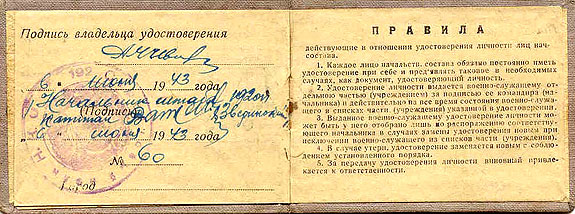 Подпись владельца удостоверения
„6" июня 1943 года
Начальник штаба
капитан
(Подпись)
„6" июня 1943 года
№ 60
Город
ПРАВИЛА
действующие в отношении удостоверения личности лиц нач-
состава.
1. Каждое лицо начальств. состава обязано постоянно иметь
удостоверение при себе и предъявлять таковое в необходимых
случаях, как документ, удостоверяющий личность.
2. Удостоверение личности выдается военно-служащему от-
дельною частью (учреждением) за подписью ее командира (на-
чальника) и действительно на все время состояния военно-служа-
щего в списках части (учреждения) указанной в удостоверении.
3. Выданное военно-служащему удостоверение личности
может быть у него отобрано лишь по распоряжению соответствую-
щего начальника в случаях замены удостоверения новым при
исключении военно-служащего из списков части (учреждения).
4. В случае утери, удостоверение заменяется новым с соблю-
дением установленного порядка.
5. За передачу удостоверения личности виновный привле-
кается к ответственности.